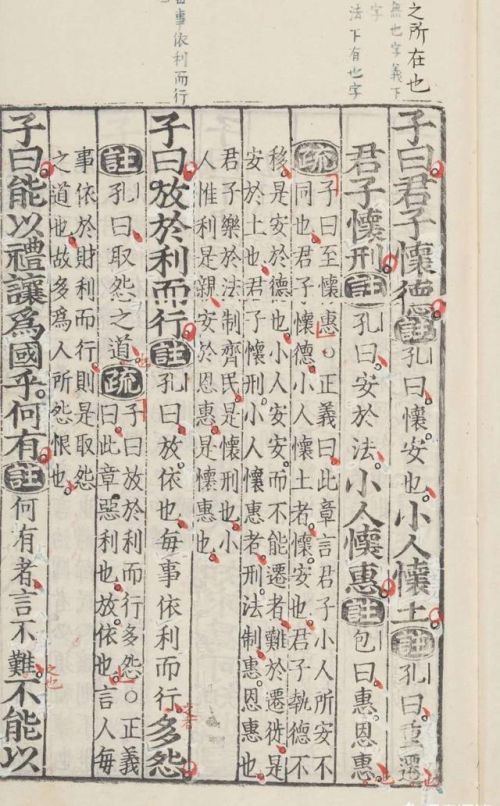 之所在也
無也字義下
字
法下有也字
事依利而行
子曰君子懷德註孔曰懷安也小人懷土註孔曰重遷
君子懷刑註孔曰安於法小人懷惠註包曰惠恩惠
疏子曰至懷惠○正義曰此章言君子小人所安不
同也君子懷德小人懷土者懷安也君子執德不
移是安於德也小人安安而不能遷者難於遷徙是
安於土也君子懷刑小人懷惠者刑法制惠恩惠也
君子樂於法制齊民是懷刑也小
人惟利是親安於恩惠是懷惠也
子曰放於利而行註孔曰放依也每事依利而行多怨
註孔曰取怨之道疏子曰放於利而行多怨○正義
曰此章惡利也放依也言人每
事依於財利而行則是取怨
之道也故多爲人所怨恨也
子曰能以禮讓爲國乎何有註何有者言不難不能以